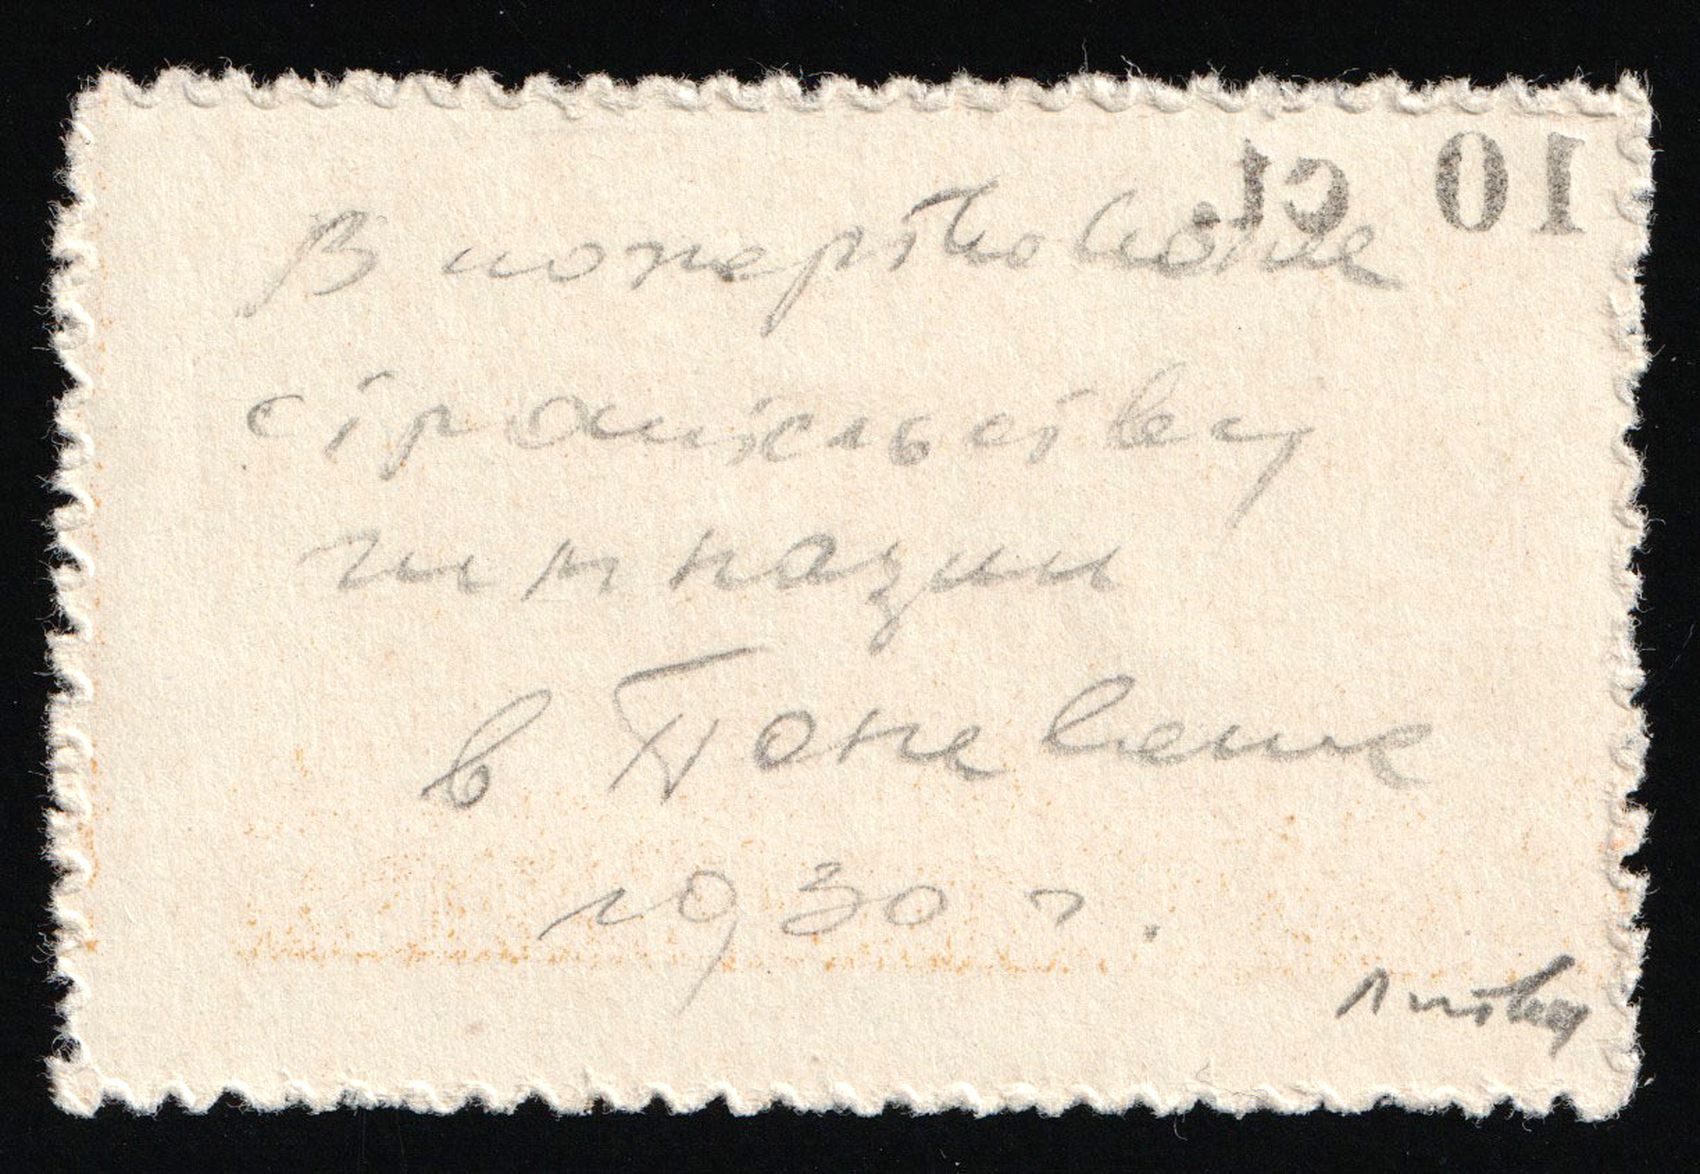 10 ct.
В пожертвование
строительству
гимназии
в Поневеже
1930 г.
Литва